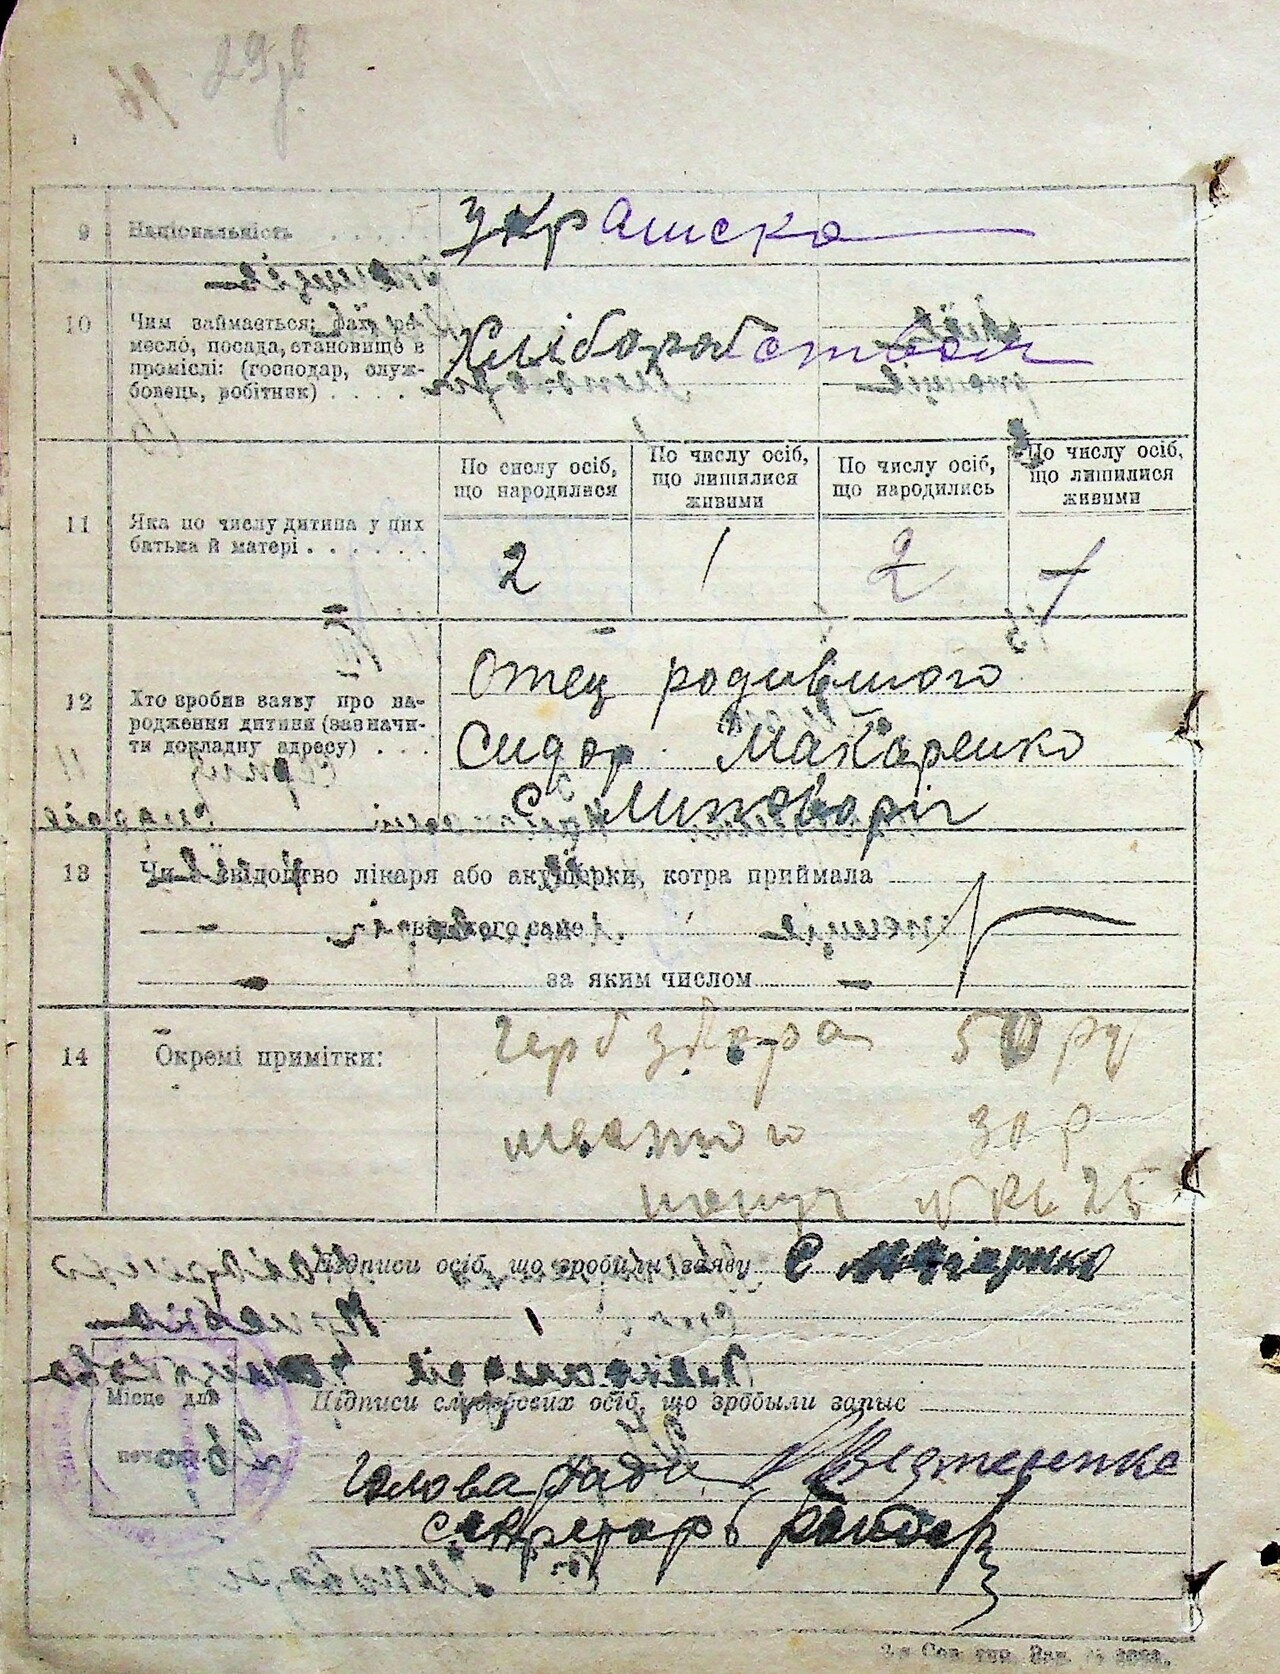 29
9 Національність . . . . . Украинска
10 Чим займається: фах, ре-
месло, посада, становище в
промислі: (господар, служ-
бовець, робітник) . . . . .
Хліборобством
11 Яка по числу дитина у цих
батька й матері . . . . . .
По числу осіб,
що народилися
По числу осіб,
що лишилися
живими
По числу осіб,
що народились
По числу осіб,
що лишилися
живими
2 1 2
12 Хто зробив заяву про на-
родження дитини (зазначи-
ти докладну адресу) . . .
Отец родившого
Сидор Макаренко
С Липоворіг
13 Чи є свідоцтво лікаря або акушерки, котра приймала
і від якого саме
за яким числом
14 Окремі примітки:
Герб збора 50 ру
30 р
25
Підписи осіб, що зробили заяву С Макаренко
Підписи службових осіб, що зробыли запыс
Місце для
печатки
Голова Ради
Секретарь